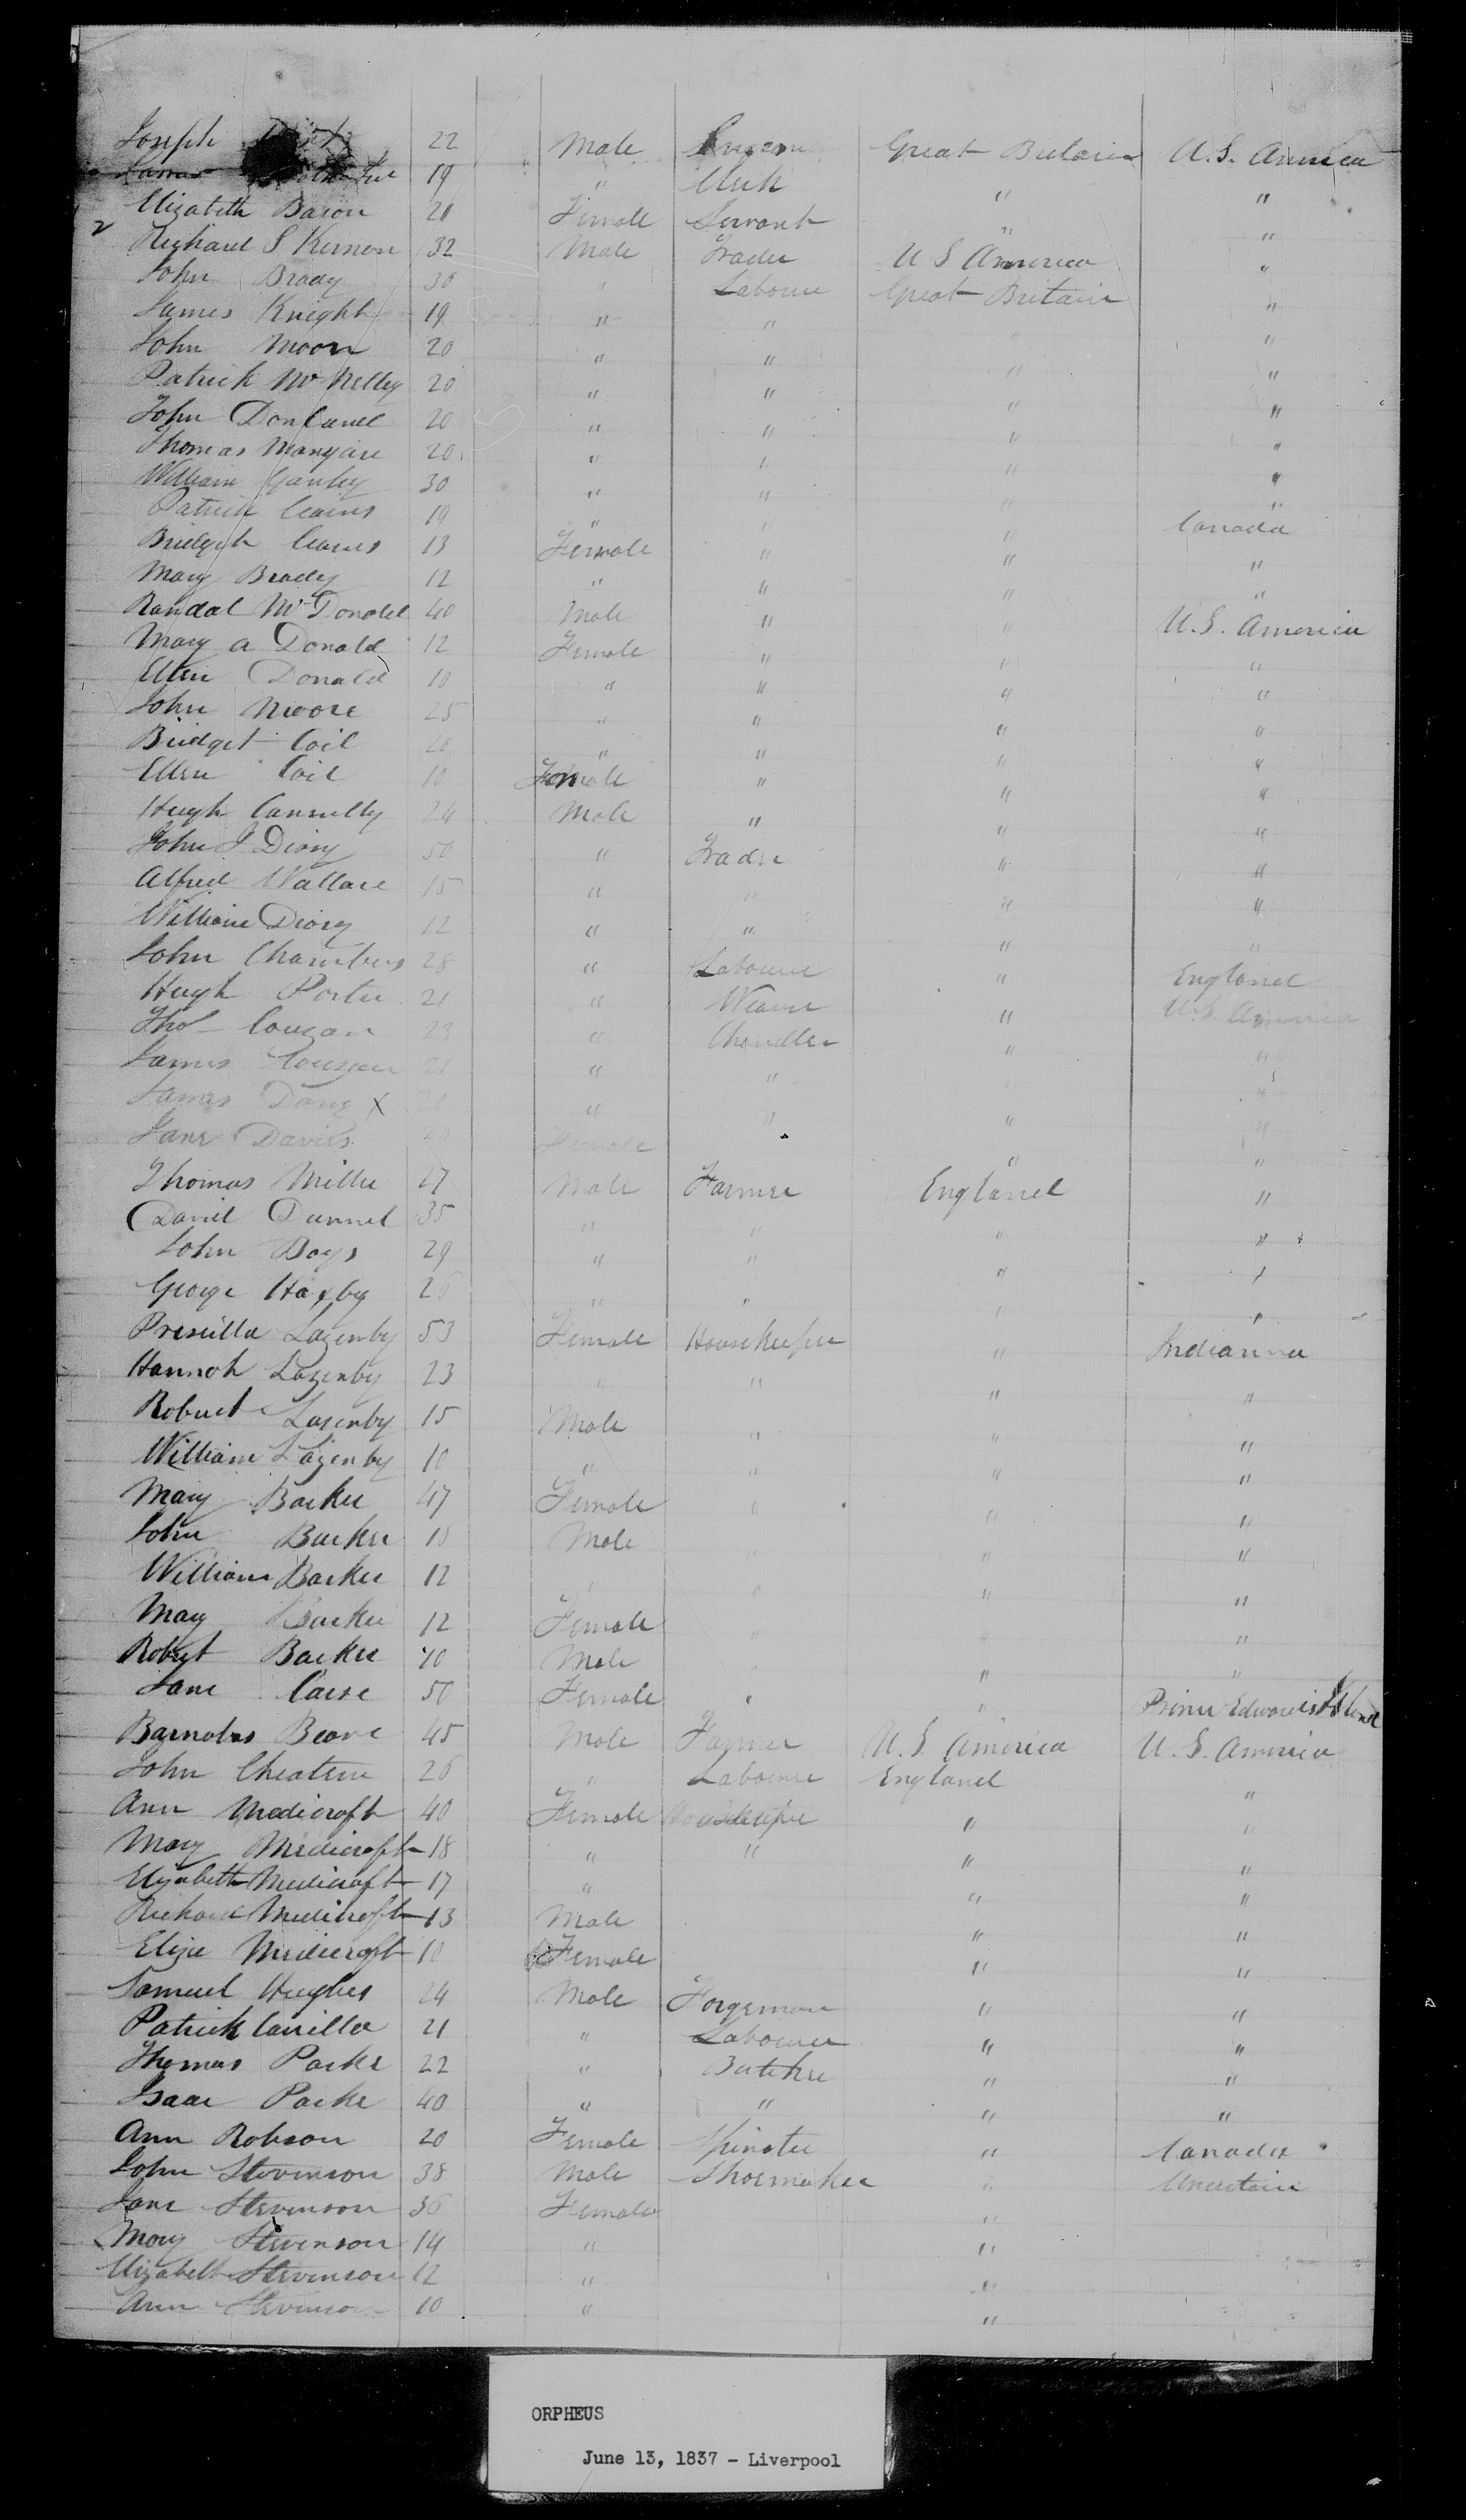 Joseph 22 Male Great Britain U.S. America
James 19 " Clerk " "
Elizabeth Bacon 20 Female Servant " "
2 Richard S Kernon 32 Male Trader U S America "
John Brady 30 " Labourer Great Britain "
James Knight 19 " " " "
John Moon 20 " " " "
Patrick McNelly 20 " " " "
John Donland 20 " " " "
Thomas Mangan 20 " " " "
William Ganley 30 " " " "
Patrick Cearns 19 " " " Canada
Bridget Cearns 13 Female " " "
Mary Brady 12 " " " "
Randal McDonald 40 Male " " U.S. America
Mary A Donald 12 Female " " "
Ellen Donald 10 " " " "
John Moore 25 " " " "
Bridget Coil 20 " " " "
Ellen Coil 10 Female " " "
Hugh Connelly 24 Male " " "
John J Diory 50 " Trader " "
Alfred Wallace 15 " " " "
William Diory 12 " " " "
John Chambers 28 " Labourer " England
Hugh Porter 21 " Weaver " U.S. America
Thos Cougan 23 " Chandler " "
James Cougan 21 " " " "
James X " " " "
Jane Davies 20 Female " " "
Thomas Miller 17 Male Farmer England "
David Dunnel 35 " " " "
John Boys 29 " " " "
George Haxby 26 " " " "
Prescilla Lazenby 53 Female Housekeeper " Indianna
Hannah Lazenby 23 " " " "
Robert Lazenby 15 Male " " "
William Lazenby 10 " " " "
Mary Barker 47 Female " " "
John Barker 18 Male " " "
William Barker 12 " " " "
Mary Barker 12 Female " " "
Robert Barker 10 Male " "
Jane Carse 50 Female " " Prince Edwards Island
Barnabas Beane 45 Male Farmer U.S. America U.S. America
John Cheatem 26 " Labourer England "
Ann Medicroft 40 Female Housekeeper " "
Mary Medicroft 18 " " " "
Elizabeth Medicroft 17 " " "
Richard Medicroft 13 Male " "
Eliza Medicroft 10 Female " "
Samuel Hughes 24 Male Forgeman " "
Patrick Carilla 21 " Labourer " "
Thomas Parke 22 " Butcher " "
Isaac Parke 40 " " " "
Ann Robson 20 Female Spinster " Canada
John Stevenson 38 Male Shoemaker " Uncertain
Jane Stevenson 36 Female "
Mary Stevenson 14 " "
Elizabeth Stevenson 12 " "
Ann Stevenson 10 " "
ORPHEUS
June 13, 1837 - Liverpool